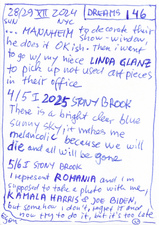 28/29 XII 2024 | DREAMS | 146
SUN NYC
... MANNHEIM to decorate their
show-window
he does it OKish. Then I went
to go w/ my niece LINDA GLANZ
to pick up not used art pieces
in their office
4/5 I 2025 STONY BROOK
There is a bright clear blue
sunny sky/it makes me
melancolic because we will
die and all will be gone
5/6 I STONY BROOK
I represent ROMANIA and I'm
supposed to take a photo with me,
KAMALA HARRIS & JOE BIDEN,
but somehow I don't, regret it and
now try to do it, but it's too late